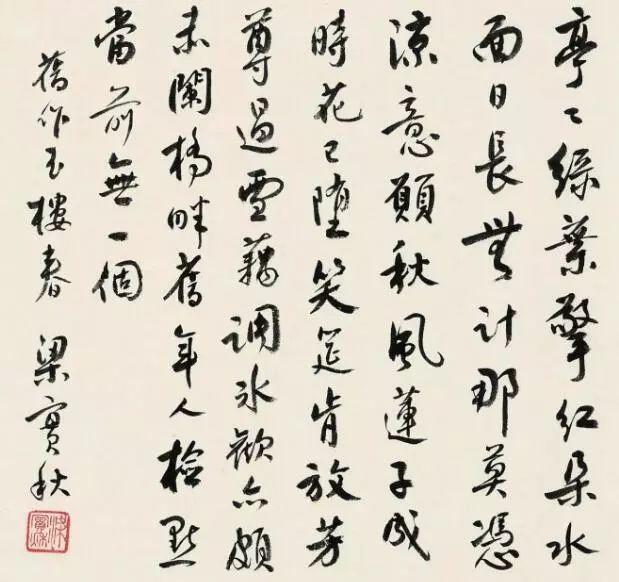 亭〻綠葉擎紅朶水
面日長無計那莫憑
涼意願秋風蓮子成
時花已墮笑筵肯放芳
尊過雪藕調冰歡亦頗
赤闌橋畔舊年人檢點
當前無一個
舊作玉樓春 梁實秋
梁實秋